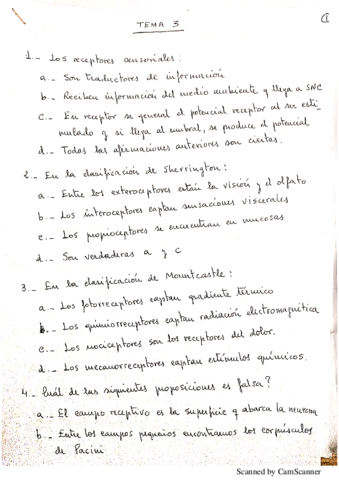 TEMA 3
1
1.- Los receptores sensoriales:
a.- Son traductores de información
b.- Reciben información del medio ambiente y llega a SNC
c.- En receptor se general el potencial receptor al ser esti-
mulado y si llega al umbral, se produce el potencial
d.- Todas las afirmaciones anteriores son ciertas.
2.- En la clasificación de Sherrington:
a.- Entre los exteroceptores están la visión y el olfato
b.- Los interoceptores captan sensaciones viscerales
c.- Los propioceptores se encuentran en mucosas
d.- Son verdaderas a y c
3.- En la clasificación de Mountcastle:
a.- Los fotorreceptores captan gradiente térmico
b.- Los quimiorreceptores captan radiación electromagnética
c.- Los nociceptores son los receptores del dolor.
d.- Los mecanorreceptores captan estímulos químicos.
4.- Cuál de las siguientes proposiciones es falsa?
a.- El campo receptivo es la superficie q abarca la neurona
b.- Entre los campos pequeños encontramos los corpúsculos
de Pacini
Scanned by CamScanner